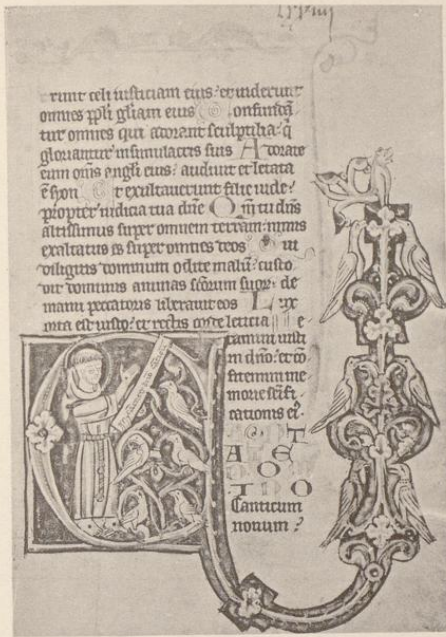 runt celi iusticiam eius: et uiderunt
omnes ppli gliam eius Confundā
tur omnes qui adorant sculptilia: q̄
gloriantur in simulacris suis Adorate
eum om̄s angli eius: audiuit et letata
ē syon Et exultauerunt filie iude:
propter iudicia tua dn̄e Qm̄ tu dn̄s
altissimus super omnem terram: nimis
exaltatus es super omnes deos Qui
diligitis dominum odite malū: custo
dit dominus animas sc̄orum suor: de
manu peccatoris liberauit eos Lux
orta est iusto: et rectis corde leticia Le
tamini iusti
in dn̄o: et cō
fitemini me
morie sc̄ifi
cationis ei'
Canticum
nouum: